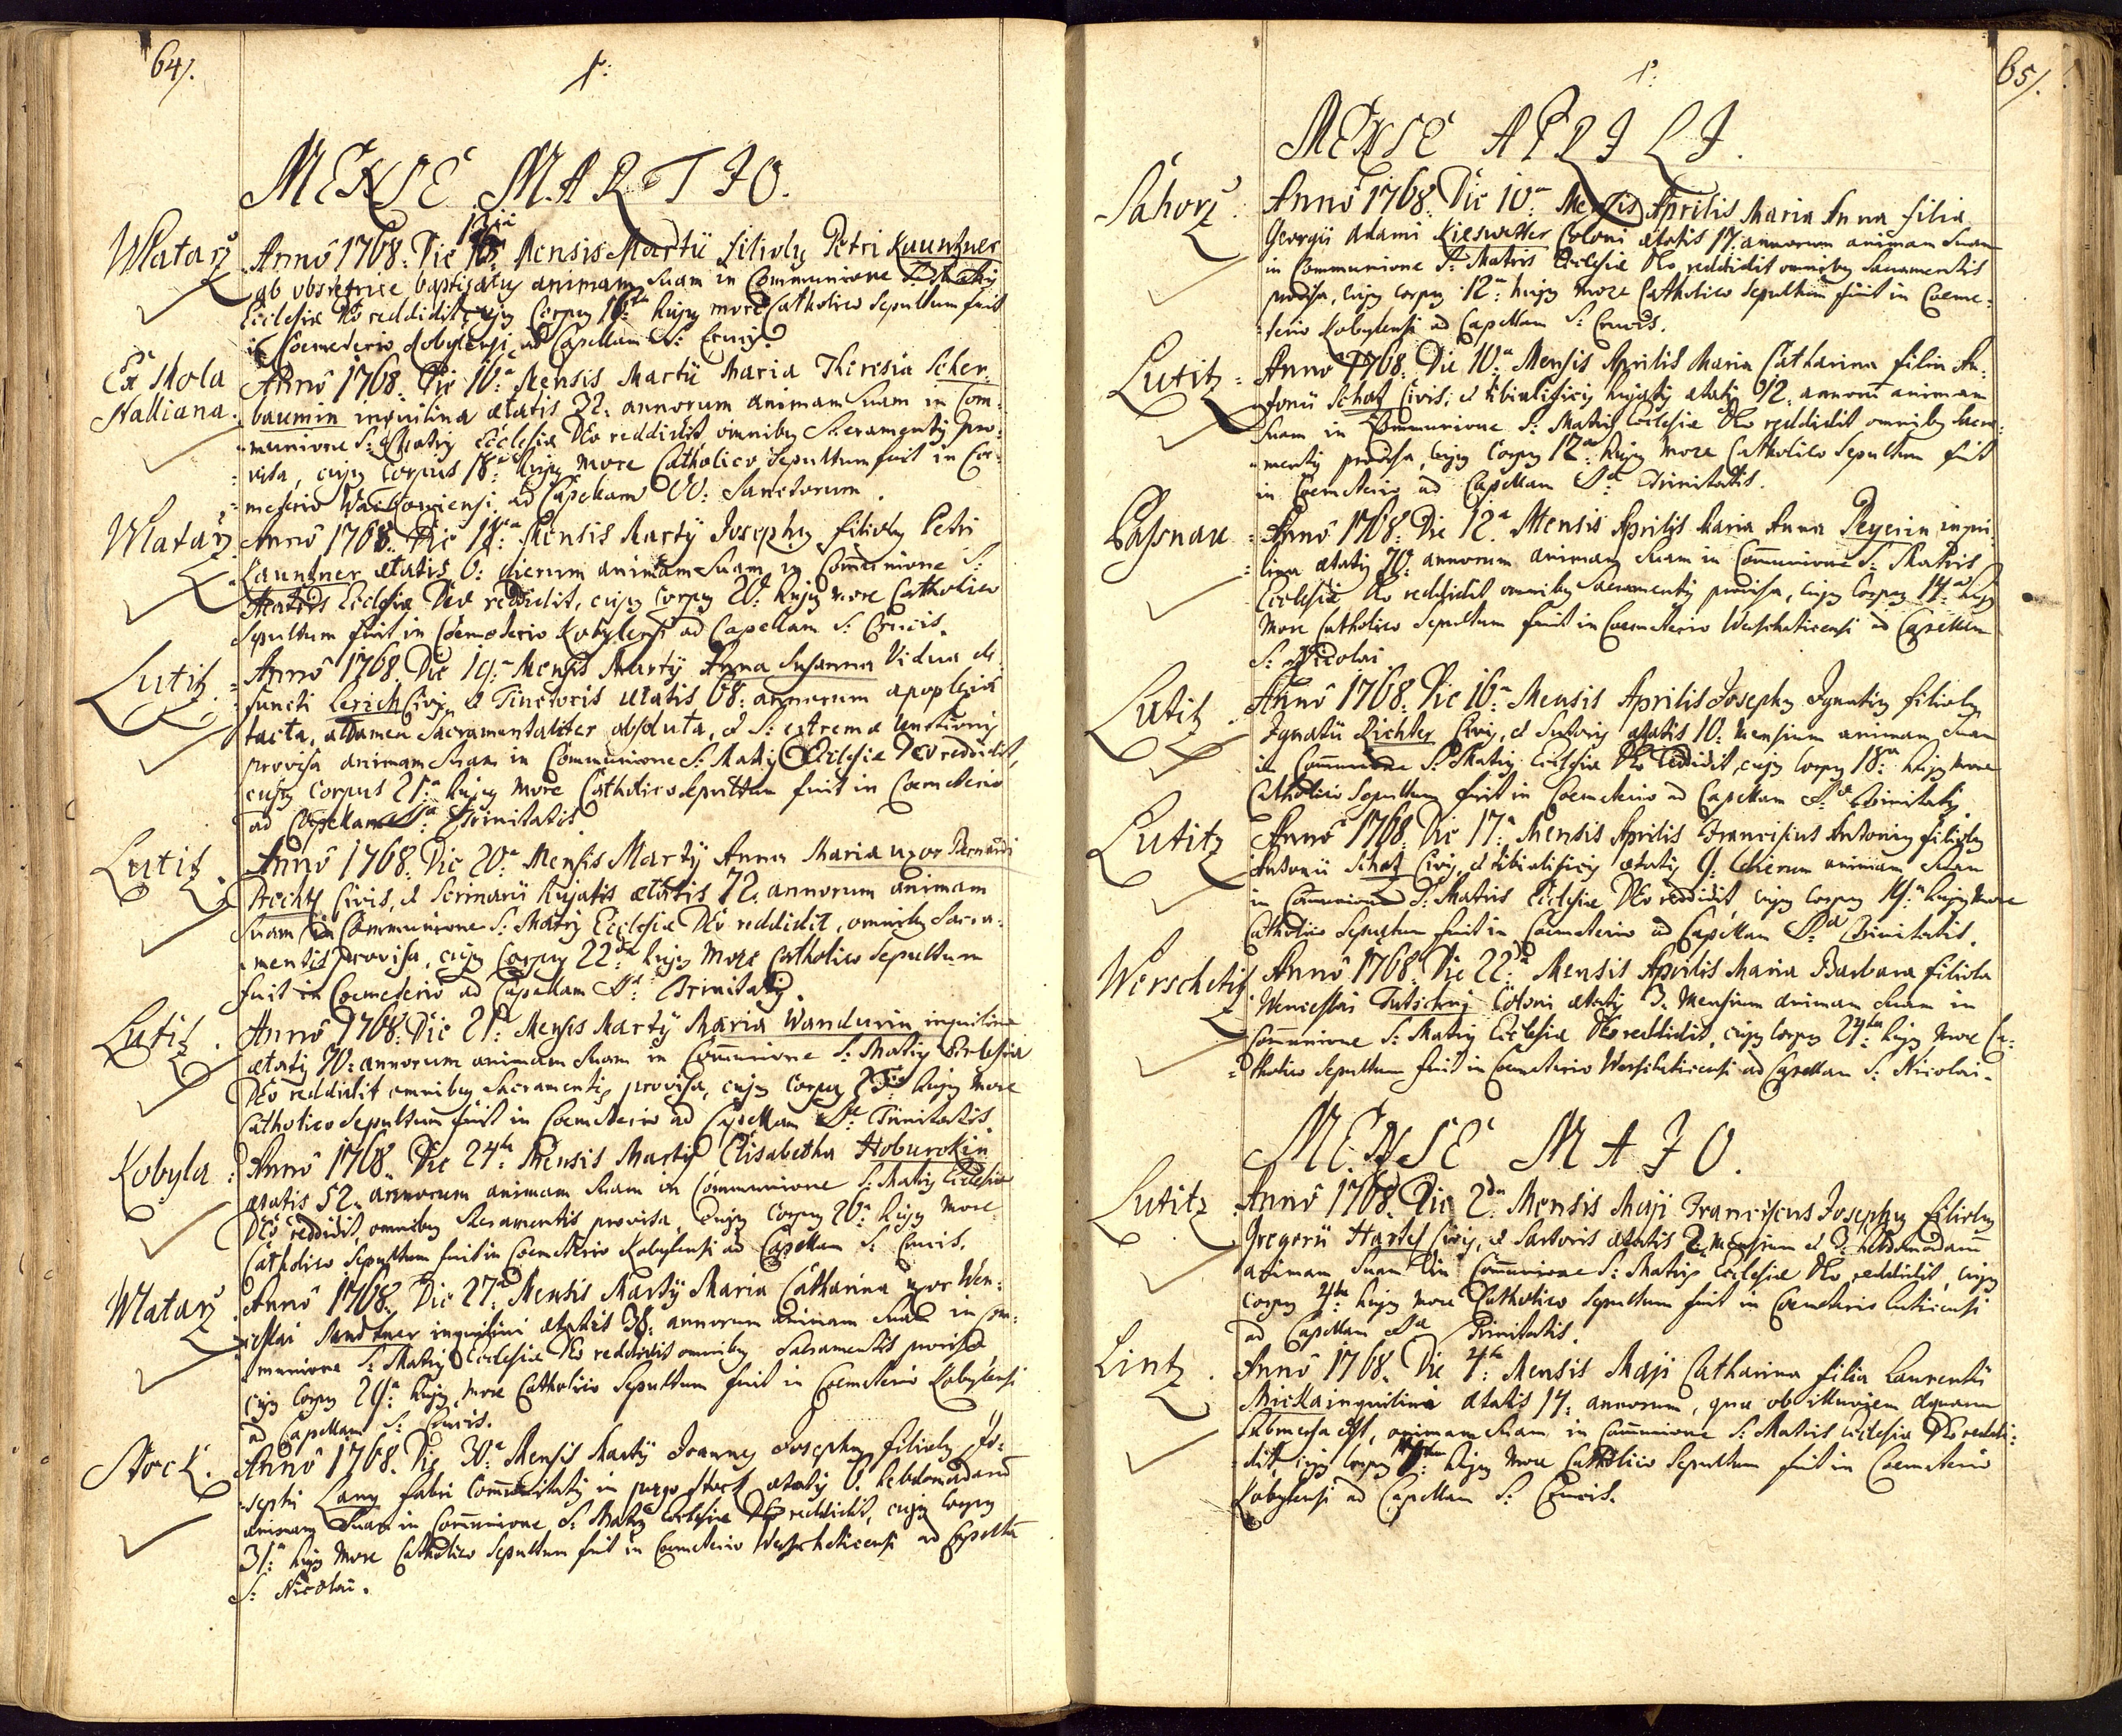 64/.
MENSE MARTIO.
Wlatarz Anno 1768. Die Mensis Martii filiolg Petri Kauntzner
ab obstetrice baptisatg animam Suam in Communione S: Matrig
Ecclesiæ DEo reddidit, cujg Corpg 16ta hujg more Catholico Sepultum fuit
in Coemeterio Kobylensi ad Capellam S: Crucig.
Ex Mola Anno 1768. Die 16a Mensis Martii Maria Theresia Scher:
Halliana. baumin inquilina ætatis 32. annorum animam Suam in Com:
munione S: Matrig Ecclesiæ DEo reddidit, omnibg Sacramentig pro:
visa, cujg Corpus 18a hujg more Catholico Sepultum fuit in Coe:
meterio ad Capellam OO: Sanctorum.
Wlatarz Anno 1768. Die 18a Mensis Martÿ Josephg filiolg Petri
Kauntzner ætatis 6: dierum animam Suam in Communione S:
Matris Ecclesiæ DEo reddidit, cujg Corpg 20: hujg more Catholico
Sepultum fuit in Coemeterio Kobylensi ad Capellam S: Crucis.
Lutitz. Anno 1768. Die 19a Mensis Martÿ Anna Susanna Vidua de:
functi Lerich Civig et Tinctoris ætatis 68: annorum apoplexia
tacta, attamen Sacramentaliter absoluta, et S: extrema Unctionig
provisa animam Suam in Communione S: Matrig Ecclesiæ DEo reddidit,
cujg Corpus 21a hujg more Catholico Sepultum fuit in Coemeterio
ad Capellam S:æ Trinitatis.
Lutitz. Anno 1768. Die 20a Mensis Martÿ Anna Maria uxor Bernardi
Civis, et Scrinarii hujatis ætatis 72. annorum animam
Suam in Communione S: Matrig Ecclesiæ DEo reddidit, omnibg Sacra:
mentis provisa, cujg Corpg 22da hujg more Catholico Sepultum
fuit in Coemeterio ad Capellam S:æ Trinitatig.
Lutitz. Anno 1768. Die 21a Mensis Martÿ Maria Wandurin inquilina
ætatig 70: annorum animam Suam in Communione S: Matrig Ecclesiæ
DEo reddidit omnibg Sacramentig provisa, cujg Corpg 23tia hujg more
Catholico Sepultum fuit in Coemeterio ad Capellam S:æ Trinitatis.
Kobyla: Anno 1768. Die 24ta Mensis Martÿ Elisabetha Hoburskin
ætatis 52. annorum animam Suam in Communione S: Matrig Ecclesiæ
DEo reddidit, omnibg Sacramentis provisa, cujg Corpg 26a hujg more
Catholico Sepultum fuit in Coemeterio Kobylensi ad Capellam S: Crucis.
Wlatarz Anno 1768. Die 27a Mensis Martÿ Maria Catharina uxor Wen:
ceslai Sandtner inquilini ætatis 38: annorum animam Suam in Com:
munione S: Matrig Ecclesiæ DEo reddidit omnibg Sacramentis provisa,
cujg Corpg 29a hujg more Catholico Sepultum fuit in Coemeterio Kobylensi
ad Capellam S: Crucis.
Stock. Anno 1768. Die 30a Mensis Martÿ Joannes Josephg filiolg Jo:
sephi Lang fabri Communitatig in purgo Stock ætatig 6. hebdomadarum
animam Suam in Communione S: Matrig Ecclesiæ DEo reddidit, cujg Corpg
31a hujg more Catholico Sepultum fuit in Coemeterio Werscheticensi ad Capellam
S: Nicolai.
65/.
MENSE APRILI.
Sahorz. Anno 1768. Die 10a Mensis Aprilis Maria Anna filia
Georgii Adami Kieswetter Coloni ætatis 17. annorum animam Suam
in Communione S: Matris Ecclesiæ DEo reddidit omnibg Sacramentis
provisa, cujg Corpg 12a hujg more Catholico Sepultum fuit in Coeme:
terio Kobylensi ad Capellam S: Crucis.
Lutitz. Anno 1768. Die 10a Mensis Aprilis Maria Catharina filia An:
tonii Schatz Civis, et tibialificig hujatig ætatig 12. annorum animam
Suam in Communione S: Matris Ecclesiæ DEo reddidit omnibg Sacra:
mentig provisa, cujg Corpg 12a hujg more Catholico Sepultum fuit
in Coemeterio ad Capellam S:æ Trinitatis.
Passnau: Anno 1768. Die 12a Mensis Aprilis Maria Anna Peyerin inqui:
lina ætatig 70: annorum animam Suam in Communione S: Matris
Ecclesiæ DEo reddidit omnibg Sacramentig provisa, cujg Corpg 14a hujg
more Catholico Sepultum fuit in Coemeterio Werscheticensi ad Capellam
S: Nicolai.
Lutitz. Anno 1768. Die 16a Mensis Aprilis Josephg Ignatig filiolg
Ignatii Richter Civig, et Sutorig ætatis 10. Mensium animam Suam
in Communione S: Matrig Ecclesiæ DEo reddidit, cujg Corpg 18a hujg more
Catholico Sepultum fuit in Coemeterio ad Capellam S:æ Trinitatig.
Lutitz Anno 1768. Die 17a Mensis Aprilis Franciscus Antonig filiolg
Antonii Schatz Civig, et tibialificig ætatig 9. dierum animam Suam
in Communione S: Matris Ecclesiæ DEo reddidit cujg Corpg 19a hujg more
Catholico Sepultum fuit in Coemeterio ad Capellam S:æ Trinitatis.
Werschetitz Anno 1768. Die 22da Mensis Aprilis Maria Barbara filiola
Wenceslai Tutschnj Coloni ætatig 3. Mensium animam Suam in
Communione S: Matrig Ecclesiæ DEo reddidit, cujg Corpg 24ta hujg more Ca:
tholico Sepultum fuit in Coemeterio Werscheticensi ad Capellam S: Nicolai.
MENSE MAJO.
Lutitz Anno 1768. Die 2da Mensis Maji Franciscus Josephg filiolg
Gregorii Hartel Civig, et Sartoris ætatis 2. Mensium et 3. hebdomadarum
animam Suam in Communione S: Matris Ecclesiæ DEo reddidit, cujg
Corpg 4ta hujg more Catholico Sepultum fuit in Coemeterio Luticensi
ad Capellam S:æ Trinitatis.
Lintz. Anno 1768. Die 4ta Mensis Maji Catharina filia Laurentii
Micka inquilini ætatis 14. annorum, quæ ob illuviem aquarum
Submersa est, animam Suam in Communione S: Matris Ecclesiæ DEo reddi:
dit, cujg Corpg hujg more Catholico Sepultum fuit in Coemeterio
Kobylensi ad Capellam S: Crucis.